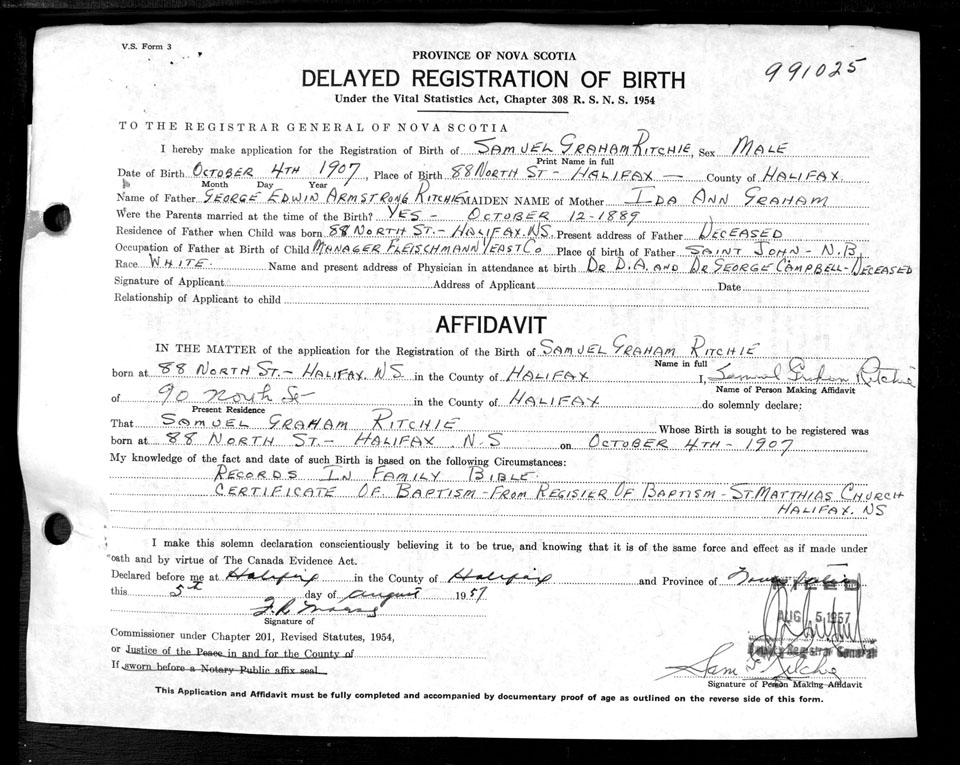 V.S. Form 3
PROVINCE OF NOVA SCOTIA
991025
DELAYED REGISTRATION OF BIRTH
Under the Vital Statistics Act, Chapter 308 R. S. N. S. 1954
TO THE REGISTRAR GENERAL OF NOVA SCOTIA
I hereby make application for the Registration of Birth of SAMUEL GRAHAM RITCHIE, Sex MALE
Print Name in full
Date of Birth OCTOBER 4TH 1907, Place of Birth 88 NORTH ST - HALIFAX - County of HALIFAX
Month Day Year
Name of Father GEORGE EDWIN ARMSTRONG RITCHIE MAIDEN NAME of Mother IDA ANN GRAHAM
Were the Parents married at the time of the Birth? YES - OCTOBER 12-1889
Residence of Father when Child was born 88 NORTH ST. - HALIFAX. NS. Present address of Father DECEASED
Occupation of Father at Birth of Child MANAGER FLEISCHMANN YEAST CO Place of birth of Father SAINT JOHN - N.B
Race WHITE. Name and present address of Physician in attendance at birth DR D.A. AND DR GEORGE CAMPBELL - DECEASED
Signature of Applicant Address of Applicant Date
Relationship of Applicant to child
AFFIDAVIT
IN THE MATTER of the application for the Registration of the Birth of SAMUEL GRAHAM RITCHIE
Name in full
born at 88 NORTH ST. - HALIFAX. NS. in the County of HALIFAX I, Samuel Graham Ritchie
Name of Person Making Affidavit
of 90 North St in the County of HALIFAX do solemnly declare:
Present Residence
That SAMUEL GRAHAM RITCHIE Whose Birth is sought to be registered was
born at 88 NORTH ST. - HALIFAX N.S on OCTOBER 4TH - 1907
My knowledge of the fact and date of such Birth is based on the following Circumstances:
RECORDS IN FAMILY BIBLE
CERTIFICATE OF BAPTISM - FROM REGISTER OF BAPTISM - ST. MATTHIAS CHURCH
HALIFAX. NS
I make this solemn declaration conscientiously believing it to be true, and knowing that it is of the same force and effect as if made under
oath and by virtue of The Canada Evidence Act.
Declared before me at Halifax in the County of Halifax and Province of Nova Scotia
this 5th day of August 1957
FILED
AUG 5 1957
Deputy Registrar General
Signature of
Commissioner under Chapter 201, Revised Statutes, 1954,
or Justice of the Peace in and for the County of
If sworn before a Notary Public affix seal
Sam G Ritchie
Signature of Person Making Affidavit
This Application and Affidavit must be fully completed and accompanied by documentary proof of age as outlined on the reverse side of this form.